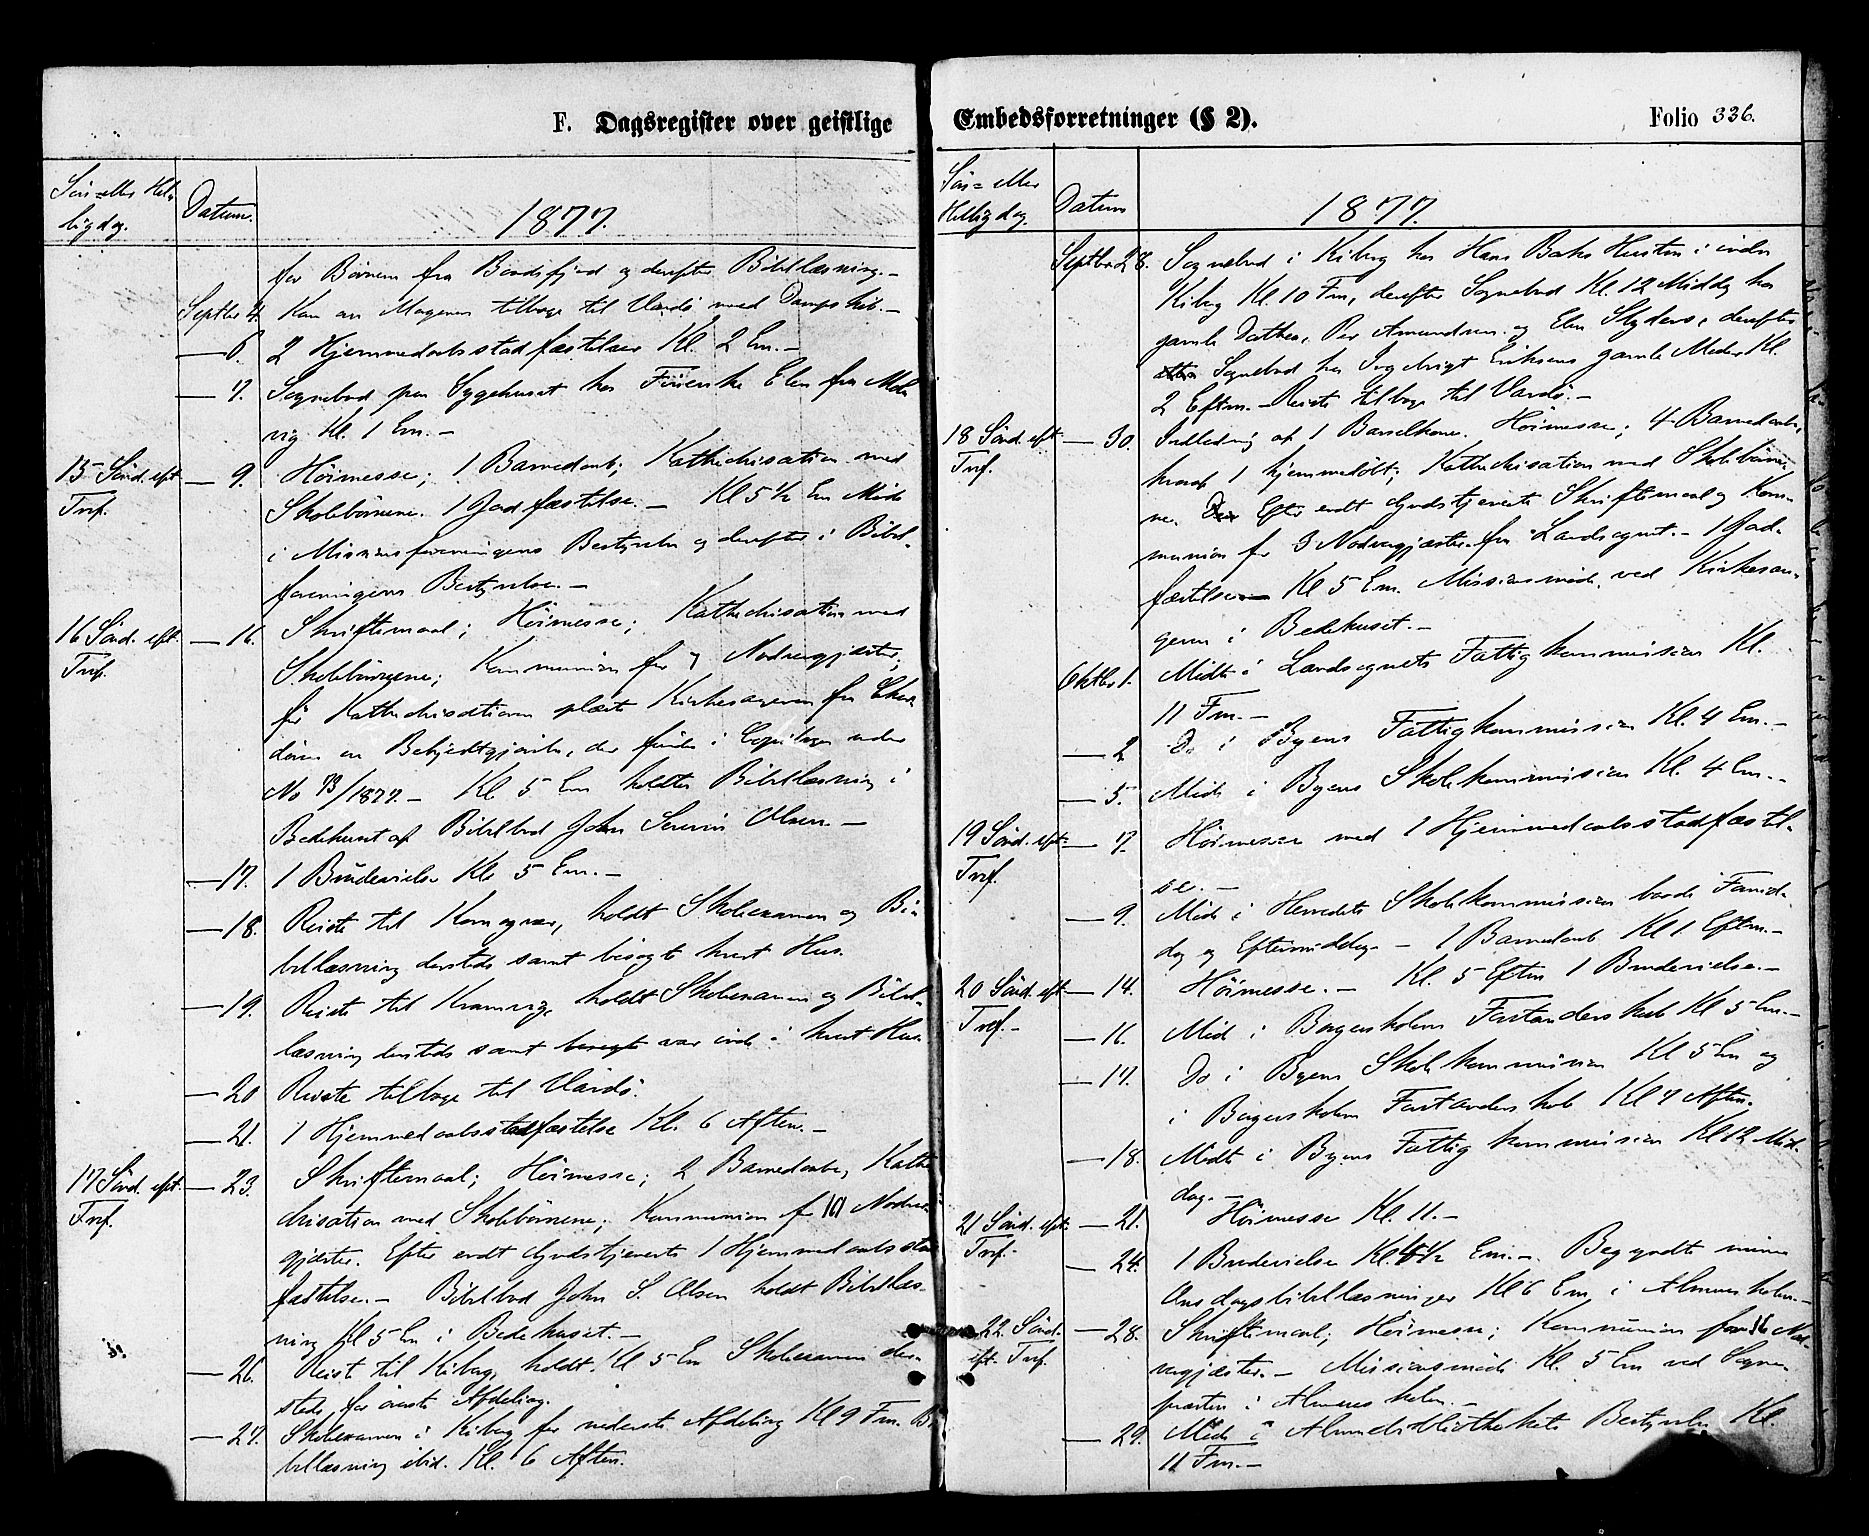 F. Dagsregister over geistlige
Søn- eller Hel-
ligdag.
Datum.
1877.
for Børnene fra Baadsfjord og derefter Bibellæsning.-
Septbr 4. Kom an Morgenen tilbage til Vardø med Dampskib.-
— 6. 2 Hjemmedaabsstadfæstelser Kl. 2 Em.-
— 7. Sognebud paa Sygehuset hos Elen fra Meh
vig Kl. 1 Em.-
15 Sønd. eft. Tref. — 9. Høimesse; 1 Barnedaab; Kathechisation med
Skolebørnene. 1 Jordfæstelse.- Kl 5 1/2 Em Møde
i Missionsforeningens Bestyrelse og derefter i Bibel-
foreningens Bestyrelse.-
16 Sønd. eft. Tref. — 16. Skriftemaal; Høimesse; Kathechisation med
Skolebørnene; Kommunion for 7 Nadvergjæster;
før Kathechisationen læste Kirkesangeren fra Chor-
døren en Bekjendtgjørelse, der findes i Copibogen under
No 73/1877.- Kl 5 Em holdtes Bibellæsning i
Bedehuset af Bibelbud John Severin Olsen.-
— 17. 1 Brudevielse Kl. 5 Em.-
— 18. Reiste til Komagvær, holdt Skoleexamen og Bi-
bellæsning dersteds samt besøgte hvert Hus.
— 19. Reiste til Kramvig, holdt Skoleexamen og Bibel-
læsning dersteds samt besøgte var inde i hvert Hus.
— 20 Reiste tilbage til Vardø.
— 21. 1 Hjemmedaabsstadfæstelse Kl. 6 Aften.-
17 Sønd. eft. Tref. — 23. Skriftemaal; Høimesse; 2 Barnedaabe, Kathe
chisation med Skolebørnene; Kommunion for 10 Nadver-
gjæster. Efter endt Gudstjeneste 1 Hjemmedaabsstad
fæstelse.- Bibelbud John S. Olsen holdt Bibellæs-
ning Kl 5 Em i Bedehuset.-
— 26. Reist til Kiberg, holdt Kl 5 Em Skoleexamen der-
steds for øverste Afdeling.
— 27. Skoleexamen i Kiberg for nederste Afdeling Kl 9 Fm. Bi
bellæsning ibid. Kl. 6 Aften.
Embedsforretninger (§ 2).
Folio 336.
Søn- eller
Helligdag.
Datum
1877.
Septbr 28. Sognebud i Kiberg hos Hans Hustru i indre
Kiberg Kl. 10 Fm, derefter Sognebud Kl. 12 Middag hos
gamle Per Amundsen og Elen derefter
Sognebud hos Ingebrigt Eriksens gamle Moder Kl.
2 Eftm.- Reiste tilbage til Vardø.-
18 Sønd. eft. Tref. — 30. Indledning af 1 Barselkone. Høimesse; 4 Barnedaabe,
hvoraf 1 hjemmedøbt; Kathechisation med Skolebørne-
ne. Efter endt Gudstjeneste Skriftemaal og Kom-
munion for 3 Nadvergjæster fra Landsognet.- 1 Jord-
fæstelse Kl 5 Em. Missionsmøde ved Kirkesan-
geren i Bedehuset.-
Oktbr 1. Mødte i Landsognets Fattigkommission Kl.
11 Fm.-
— 2 Do i Byens Fattigkommission Kl. 4 Em.-
— 5. Møde i Byens Skolekommission Kl. 4 Em.-
19 Sønd. eft. Tref. — 7. Høimesse med 1 Hjemmedaabsstadfæstel-
se.-
— 9. Møde i Herredets Skolekommission baade Formid-
dag og Eftermiddag.- 1 Barnedaab Kl 1 Eftm.-
20 Sønd. eft. Tref.- — 14. Høimesse.- Kl. 5 Eftm 1 Brudevielse.-
— 16. Møde i Borgerskolens Forstanderskab Kl 5 Em.-
— 17. Do i Byens Skolekommission Kl 5 Em og
i Borgerskolens Forstanderskab Kl 7 Aften.
— 18. Mødte i Byens Fattigkommission Kl 12 Mid-
dag.-
21 Sønd. eft. Tref.- — 21. Høimesse Kl. 11.-
— 24. 1 Brudevielse Kl. 4 1/2 Em.- Begyndte mine
Onsdagsbibellæsninger Kl 6 Em i Almueskolen.-
22 Sønd. eft. Tref. — 28. Skriftemaal; Høimesse; Kommunion for 16 Nad-
vergjæster.- Missionsmøde Kl. 5 Em ved Sogne-
præsten i Almueskolen.-
— 29. Møde i Almuebibliothekets Bestyrelse Kl.
11 Fm.-